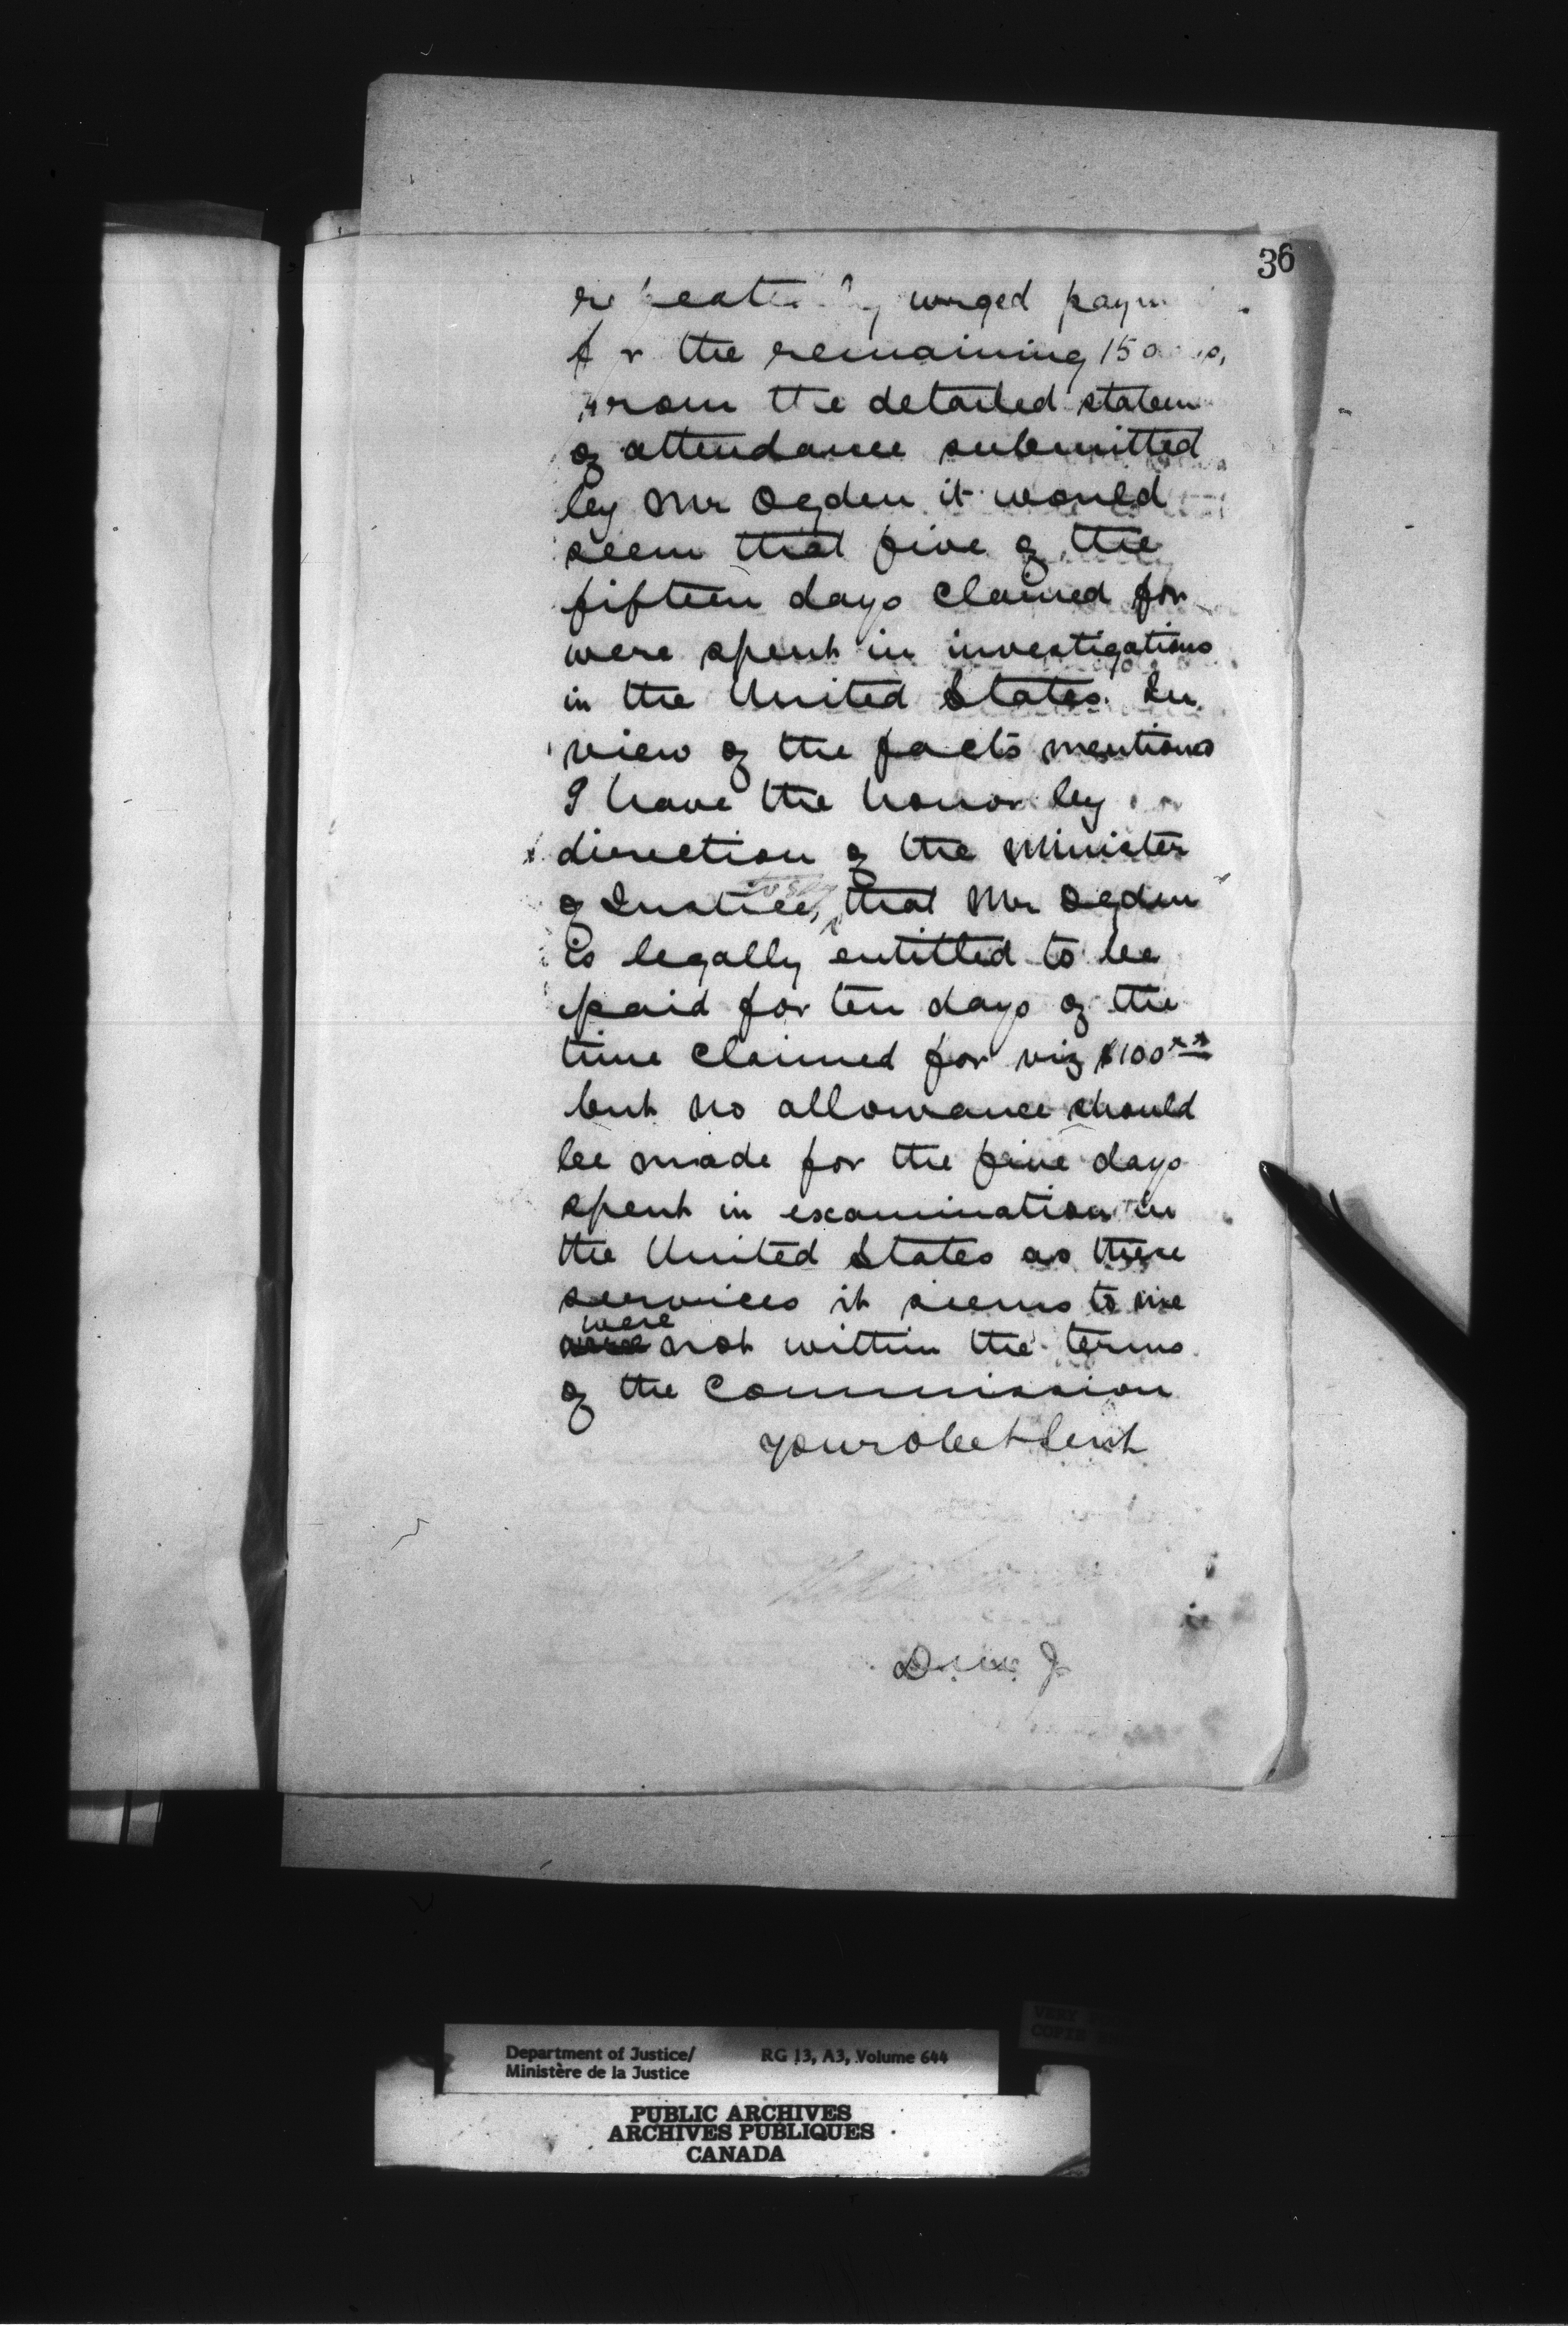 36
repeatedly urged paym
for the remaining 15 days,
From the detailed statem
of attendance submitted
by Mr Ogden it would
seem that five of the
fifteen days claimed for
were spent in investigations
in the United States. In
view of the facts mentioned
I have the honor by
direction of the Minister
of Justice, to say that Mr Ogden
is legally entitled to be
paid for ten days of the
time claimed for viz $100
but no allowance should
be made for the five days
spent in examination in
the United States as these
services it seems to me
were
not within the terms
of the Commission
your obet Servt
D.M. J
Department of Justice/ RG 13, A3, Volume 644
Ministère de la Justice
PUBLIC ARCHIVES
ARCHIVES PUBLIQUES
CANADA